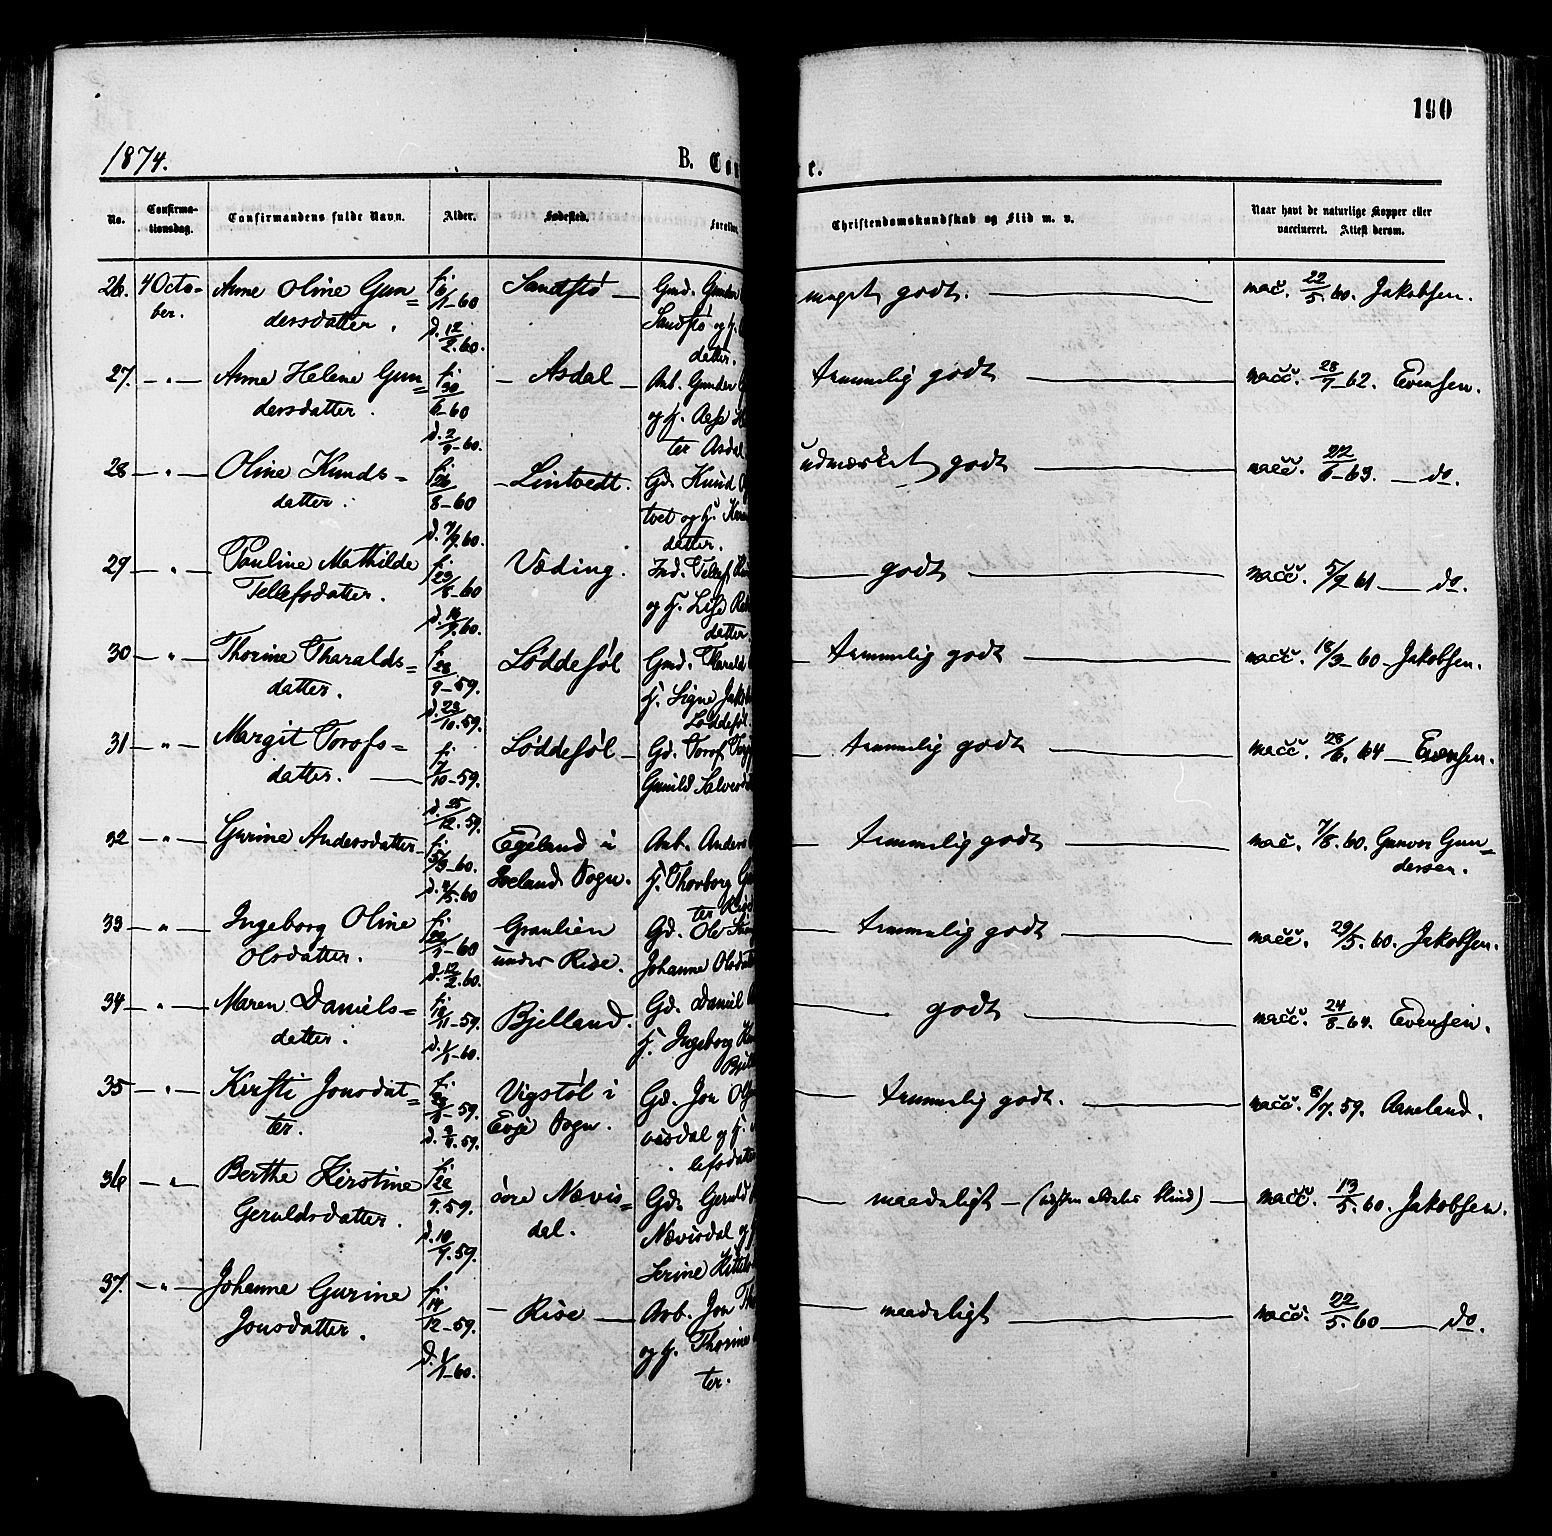 190
1874.
B. Con e.
No. Confirma-
tionsdag. Confirmandens fulde Navn. Alder. Fødested. Forældre
Christendomskundskab og Flid m. v. Naar havt de naturlige Kopper eller
vaccineret. Attest derom.
26. 4 Octo-
ber. Anne Oline Gun=
dersdatter. f. 6/1-60
d. 12/2.60. Sandstø — Gmd. Gunder
Sandstø og H.
datter. meget godt. vacc. 22/5.60. Jakobsen.
27. — " — Anne Helene Gun=
dersdatter. f. 30/6-60
d. 2/9-60. — Asdal — Arb. Gunder
og H. Aase
ter Asdal temmelig godt vacc. 28/7-62. Evensen.
28 — " — Oline Knuds=
datter. f. 26/8-60
d. 7/9.60. — Lintvedt. Gd. Knud
tvet og H.
datter. udmærket godt vacc. 22/6-63. — do.
29 — " — Pauline Mathilde
Tellefsdatter. f. 29/8-60
d. 16/9.60. Væding. Ind. Tellef
og H. Lise
datter godt vacc. 5/9 61 — do.
30 — " — Thorine Tharalds=
datter. f. 28/9-59.
d. 23/10.59. Løddesøl Gmd. Tharald
H. Signe Jakob
Løddesøl temmelig godt vacc. 18/9-60 Jakobsen.
31 — " — Margit Torofs=
datter. f. 7/10-59.
d. 25/12.59. Løddesøl — Gd. Torof
Gunild Salves temmelig godt vacc. 28/6.64 — Evensen.
32 — " — Gurine Andersdatter f. 5/3-60.
d. 4/5.60 Egeland i
Iveland Sogn. Arb. Anders
H. Thorborg
ter Rise temmelig godt vacc. 7/8.60. Gunvor Gun=
dersen.
33 — " — Ingeborg Oline
Olsdatter. f. 22/1-60
d. 12/2.60. Graulien
under Rise. Gd. Ole
Johanne Olsdat temmelig godt vacc. 29/5.60. Jakobsen.
34 — " — Maren Daniels=
datter. f. 18/11-59.
d. 1/1-60. Bjelland. Gd. Daniel
H. Ingeborg
Bjell godt vacc. 24/8-64. Evensen.
35 — " — Kirsti Jonsdat=
ter. Vigstøl i
Evje Sogn. Gd. Jon
visdal og H.
lefsdatter temmelig godt. vacc. 8/9.59. Aaneland.
36 — " — Berthe Kirstine
Geruldsdatter. d. 10/9.59. øvre Nævis=
dal. Gd. Geruld
Nævisdal og
Serine Kittels maadeligt — (næsten aldeles blind) — vacc. 13/5.60. Jakobsen.
37. — " — Johanne Gurine
Jonsdatter. f. 14/12-59.
d. 1/1-60. — Rise — Arb. Jon
og H. Thorine
ter. maadeligt vacc. 22/5.60 — do.